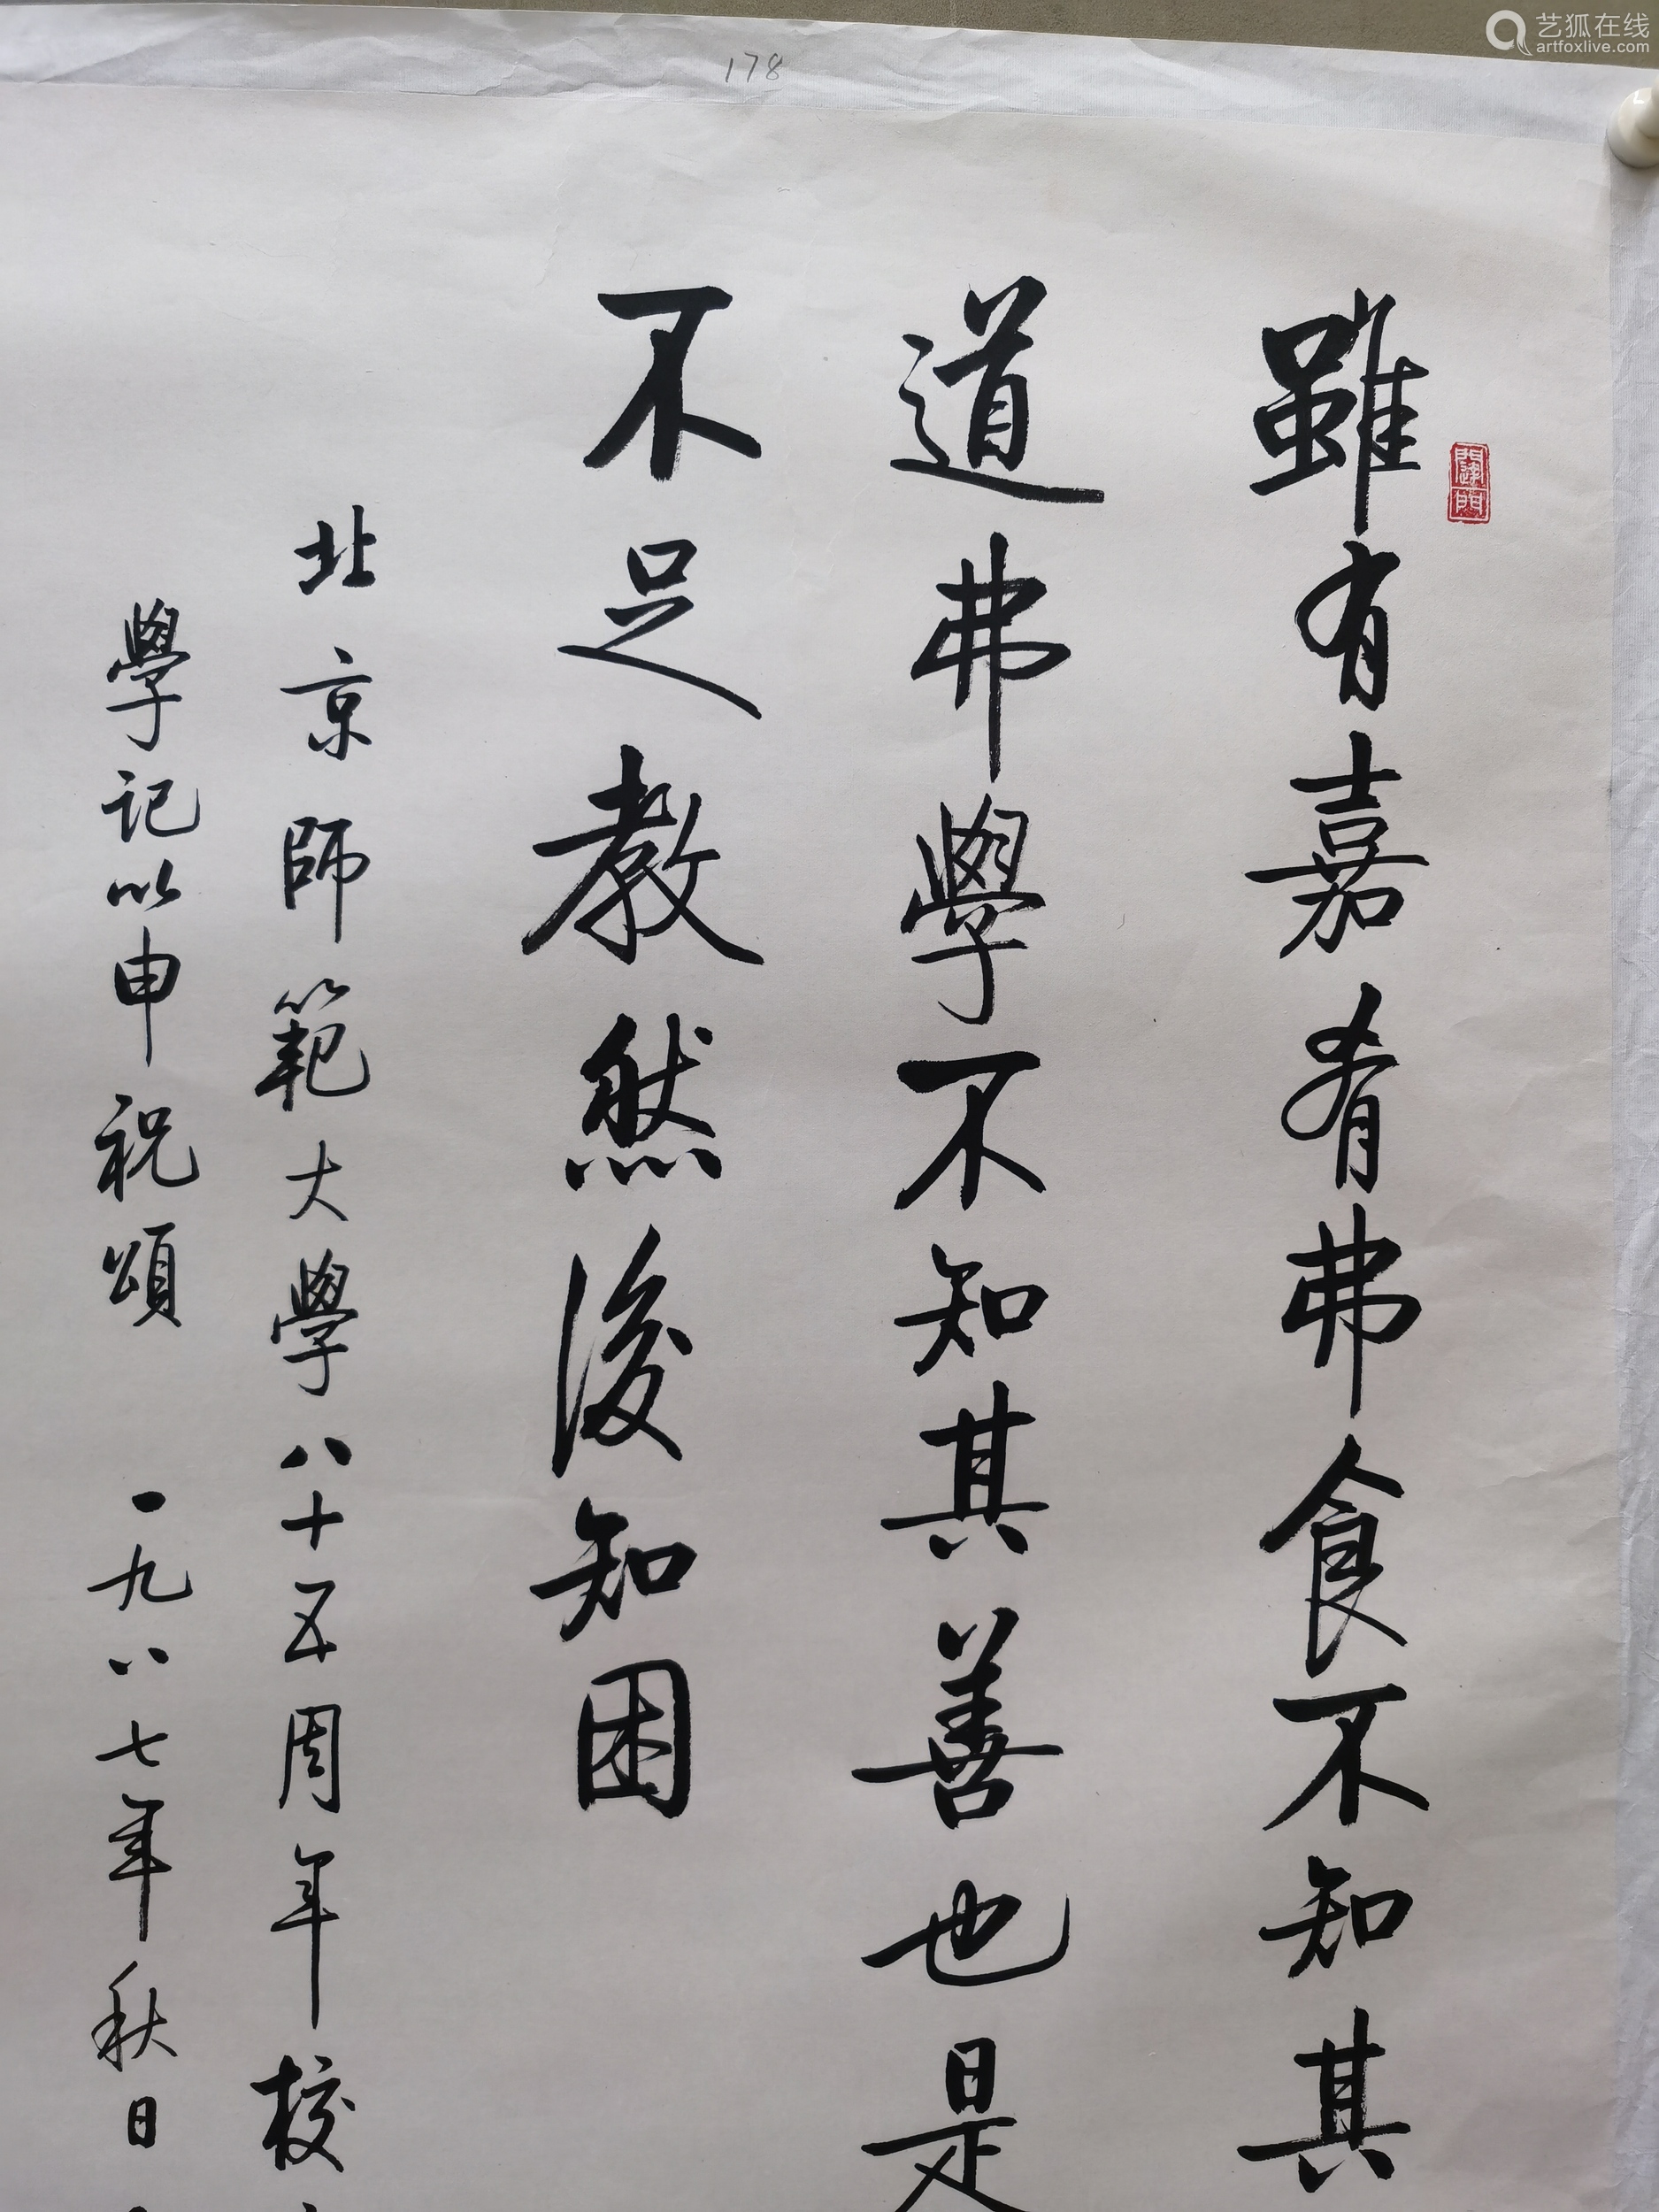 雖有嘉肴弗食不知其
道弗學不知其善也是
不足教然後知困
北京師範大學八十五周年校
學記以申祝頌 一九八七年秋日
178
艺狐在线
artfoxlive.com